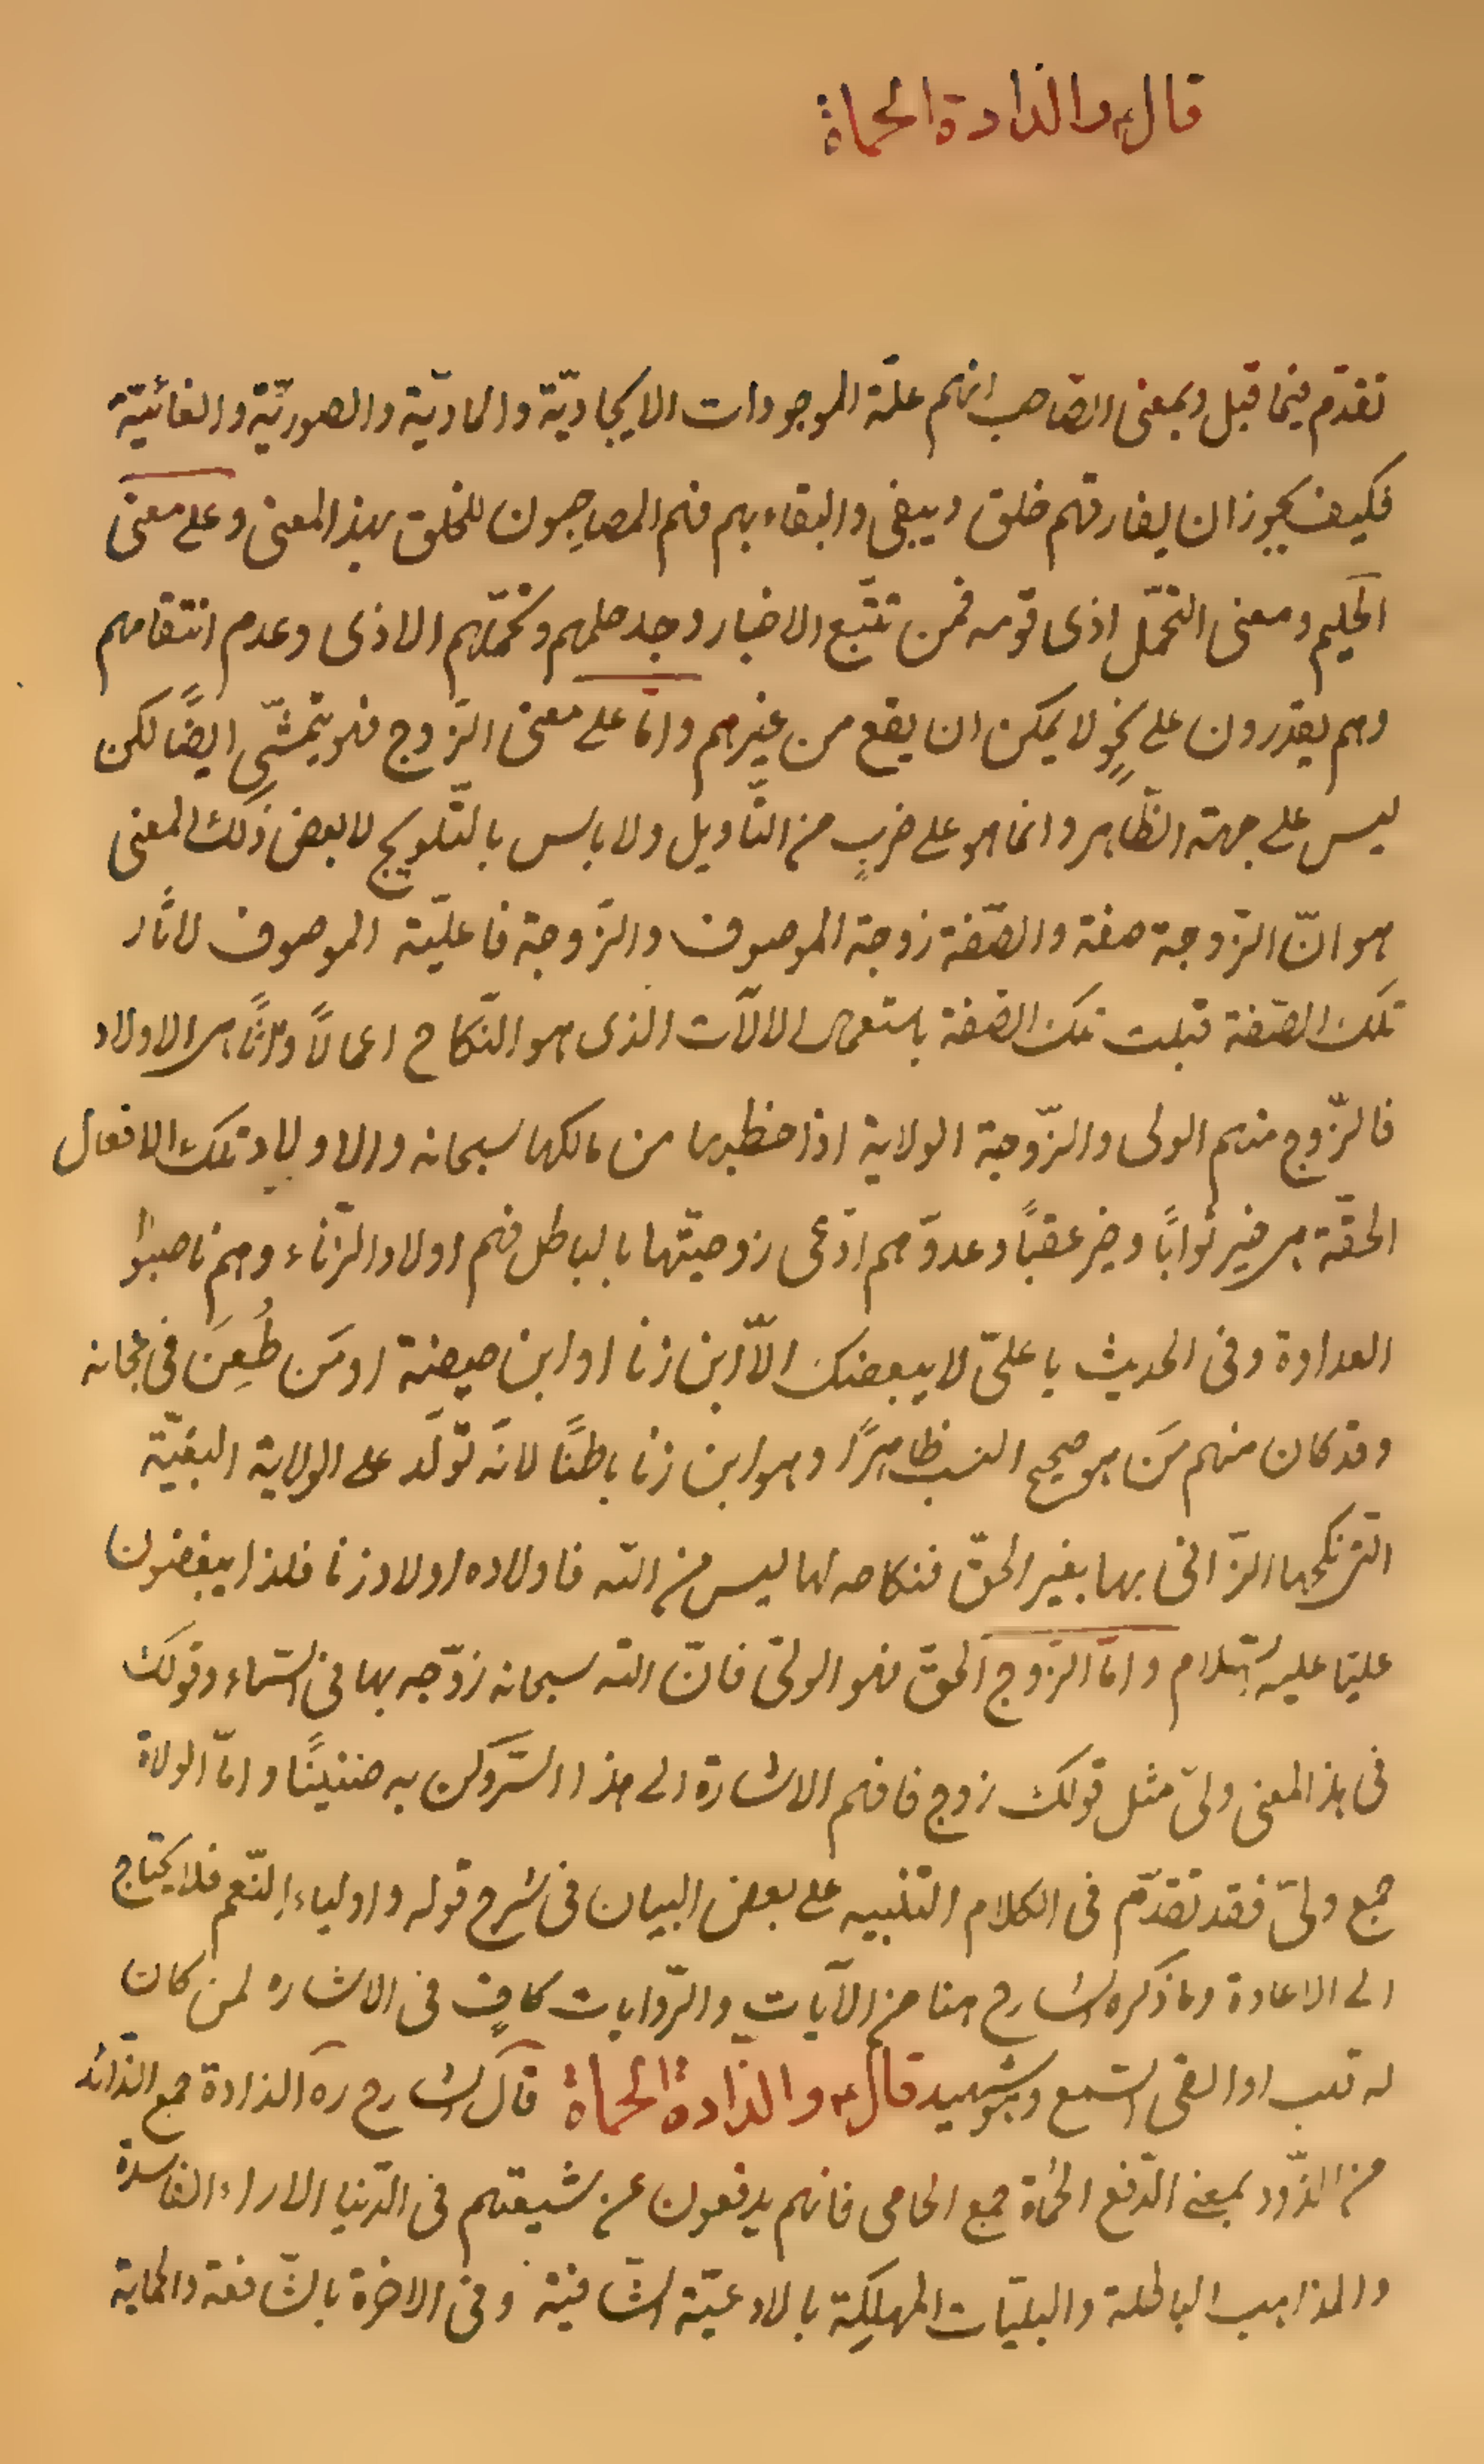 قال ع والذادة الحماة
تقدّم فيما قبل وبمعنى الصّاحب انهم علّة الموجودات الايجاديّة والماديّة والصوريّة والغائيّة
فكيف يجوز ان يفارقهم خلق ويبقى والبقاء بهم فهم المصاحِبون للخلق بهذا المعنى وعلى معنى
الحليم ومعنى التحمّل اذى قومه فمن تتبّع الاخبار وجد حلمهم وتحمّلهم الاذى وعدم انتقامهم
وهم يقدرون على نحوٍ لا يمكن ان يقع من غيرهم وامّا على معنى الزّوج فهو يتمشّى ايضًا لكن
ليس على جهة الظّاهر وانما هو على ضربٍ من التّاويل ولا باس بالتّلويح لابعض ذلك المعنى
هو انّ الزّوجة صفة والصّفة زوجة الموصوف والزّوجة فاعليّة الموصوف لاثار
تلك الصّفة قبلت تلك الصّفة باستعمال الالآت الذى هو النّكاح اعمالاً واثاًر هى الاولاد
فالزّوج منهم الولى والزّوجة الولاية اذا خطبها من مالكها سبحانه والاولاد تلك الافعال
الحقّة هى خير ثوابًا وخير عقبًا وعدوّهم ادّعى زوجيّتها بالباطل فهم اولاد الزّناء وهم ناصبوا
العداوة وفى الحديث يا علىّ لا يبغضك الاّ ابن زنا او ابن حيضة او مَن طُعِنَ فى عجانه
وقد كان منهم مَن هو صحيح النسب ظاهِرًا وهو ابن زنا باطنًا لانّه تَولّد على الولاية البغيّة
التى نكحها الزّانى بها بغير الحقّ فنكاحه لها ليس من اللّه فاولاده اولاد زنا فلذا يبغضون
عليّا عليه السّلام وامّا الزّوج الحقّ فهو الولىّ فانّ اللّه سبحانه زوّجه بها فى السّماء وقولك
فى هذا المعنى ولىّ مثل قولك زوج فافهم الاشارة الى هذا السّرّ وكن به ضنينًا وامّا الولاة
جمع ولىّ فقد تقدّم فى الكلام التّنبيه على بعض البيان فى شرح قوله واولياء النّعم فلا يحتاج
الى الاعادة وما ذكره الشارح هنا من الآيات والرّوايات كافٍ فى الاشاره لمن كان
له قلب او القى السّمع وهو شهيد قال ع والذّادة الحماة قال الشارح ره الذادة جمع الذّائد
من الذّود بمعنى الدّفع الحُماة جمع الحامى فانهم يدفعون عن شيعتهم فى الدّنيا الاراء الفاسدة
والمذاهب الباطلة والبليّات المهلِكة بالادعيّة الشّافية وفى الاخرة بالشّافعة والحماية